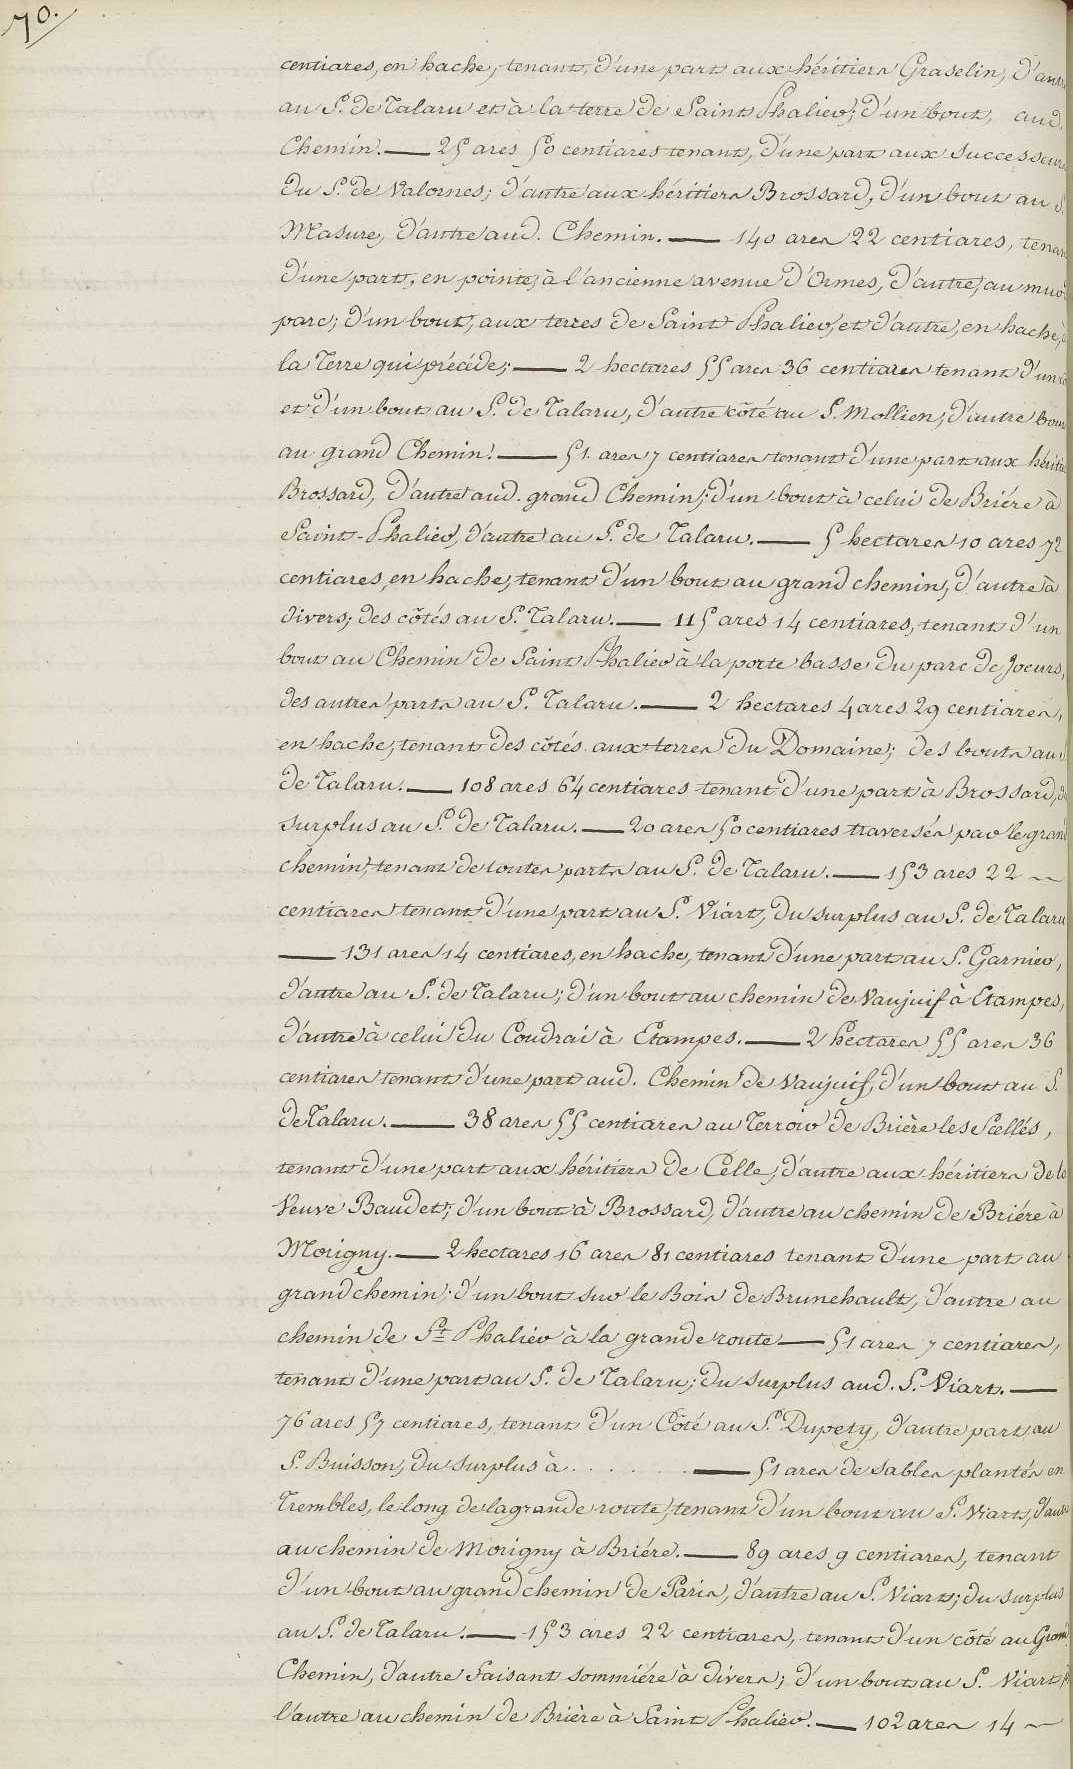 70.
centiares, en hache, tenant, d'une part aux héritiers Graselin, d'autre
au S. de Talaru et à la terre de Saint Phalier; d'un bout, aud.
Chemin. — 25 ares 50 centiares tenant, d'une part aux successeurs
du S. de Valornes; d'autre aux héritiers Brossard, d'un bout au S.
Masure, d'autre aud. Chemin. — 140 ares 22 centiares, tenant
d'une part, en pointe, à l'ancienne avenue d'Ormes, d'autre, au mur du
parc; d'un bout, aux terres de Saint Phalier, et d'autre, en hache, à
la Terre qui précéde; — 2 hectares 55 ares 36 centiares tenant d'un côté
et d'un bout au S. de Talaru, d'autre côté au S. Mollien; d'autre bout
au grand Chemin. — 51 ares 7 centiares tenant d'une part aux héritiers
Brossard, d'autre aud. grand Chemin; d'un bout à celui de Briére à
Saint-Phalier, d'autre au S. de Talaru. — 5 hectares 10 ares 72
centiares, en hache, tenant d'un bout au grand chemin, d'autre à
divers; des côtés au S. Talaru. — 115 ares 14 centiares, tenant d'un
bout au Chemin de Saint Phalier à la porte basse du parc de Joeurs,
des autres parts au S. Talaru. — 2 hectares 4 ares 29 centiares,
en hache, tenant des côtés aux terres du Domaine; des bouts au S.
de Talaru. — 108 ares 64 centiares tenant d'une part à Brossard, du
surplus au S. de Talaru. — 20 ares 50 centiares traversés par le grand
chemin, tenant de toutes parts au S. de Talaru. — 153 ares 22 ~
centiares tenant d'une part au S. Viart, du surplus au S. de Talaru
— 131 ares 14 centiares, en hache, tenant d'une part au S. Garnier,
d'autre au S. de Talaru; d'un bout au chemin de Vaujuif à Etampes,
d'autre à celui du Coudrai à Etampes. — 2 hectares 55 ares 36
centiares tenant d'une part aud. Chemin de Vaujuif, d'un bout au S.
de Talaru. — 38 ares 55 centiares au Terroir de Brière les Scellés,
tenant d'une part aux héritiers de Celle; d'autre aux héritiers de la
Veuve Baudet; d'un bout à Brossard, d'autre au chemin de Briére à
Morigny. — 2 hectares 16 ares 81 centiares tenant d'une part au
grand chemin; d'un bout sur le Bois de Brunehault, d'autre au
chemin de St. Phalier à la grande route — 51 ares 7 centiares,
tenant d'une part au S. de Talaru; du surplus aud. S. Viart. —
76 ares 57 centiares, tenant d'un Côté au S. Dupety, d'autre part au
S. Buisson, du surplus à . . . . . . . — 51 ares de sables plantés en
Trembles, le long de la grande route, tenant d'un bout au S. Viart, d'autre
au chemin de Morigny à Briére. — 89 ares 9 centiares, tenant
d'un bout au grand chemin de Paris, d'autre au S. Viart; du surplus
au S. de Talaru. — 153 ares 22 centiares, tenant d'un côté au Grand
Chemin, d'autre faisant sommiére à divers; d'un bout au S. Viart, à
l'autre au chemin de Brière à Saint Phalier. — 102 ares 14 ~